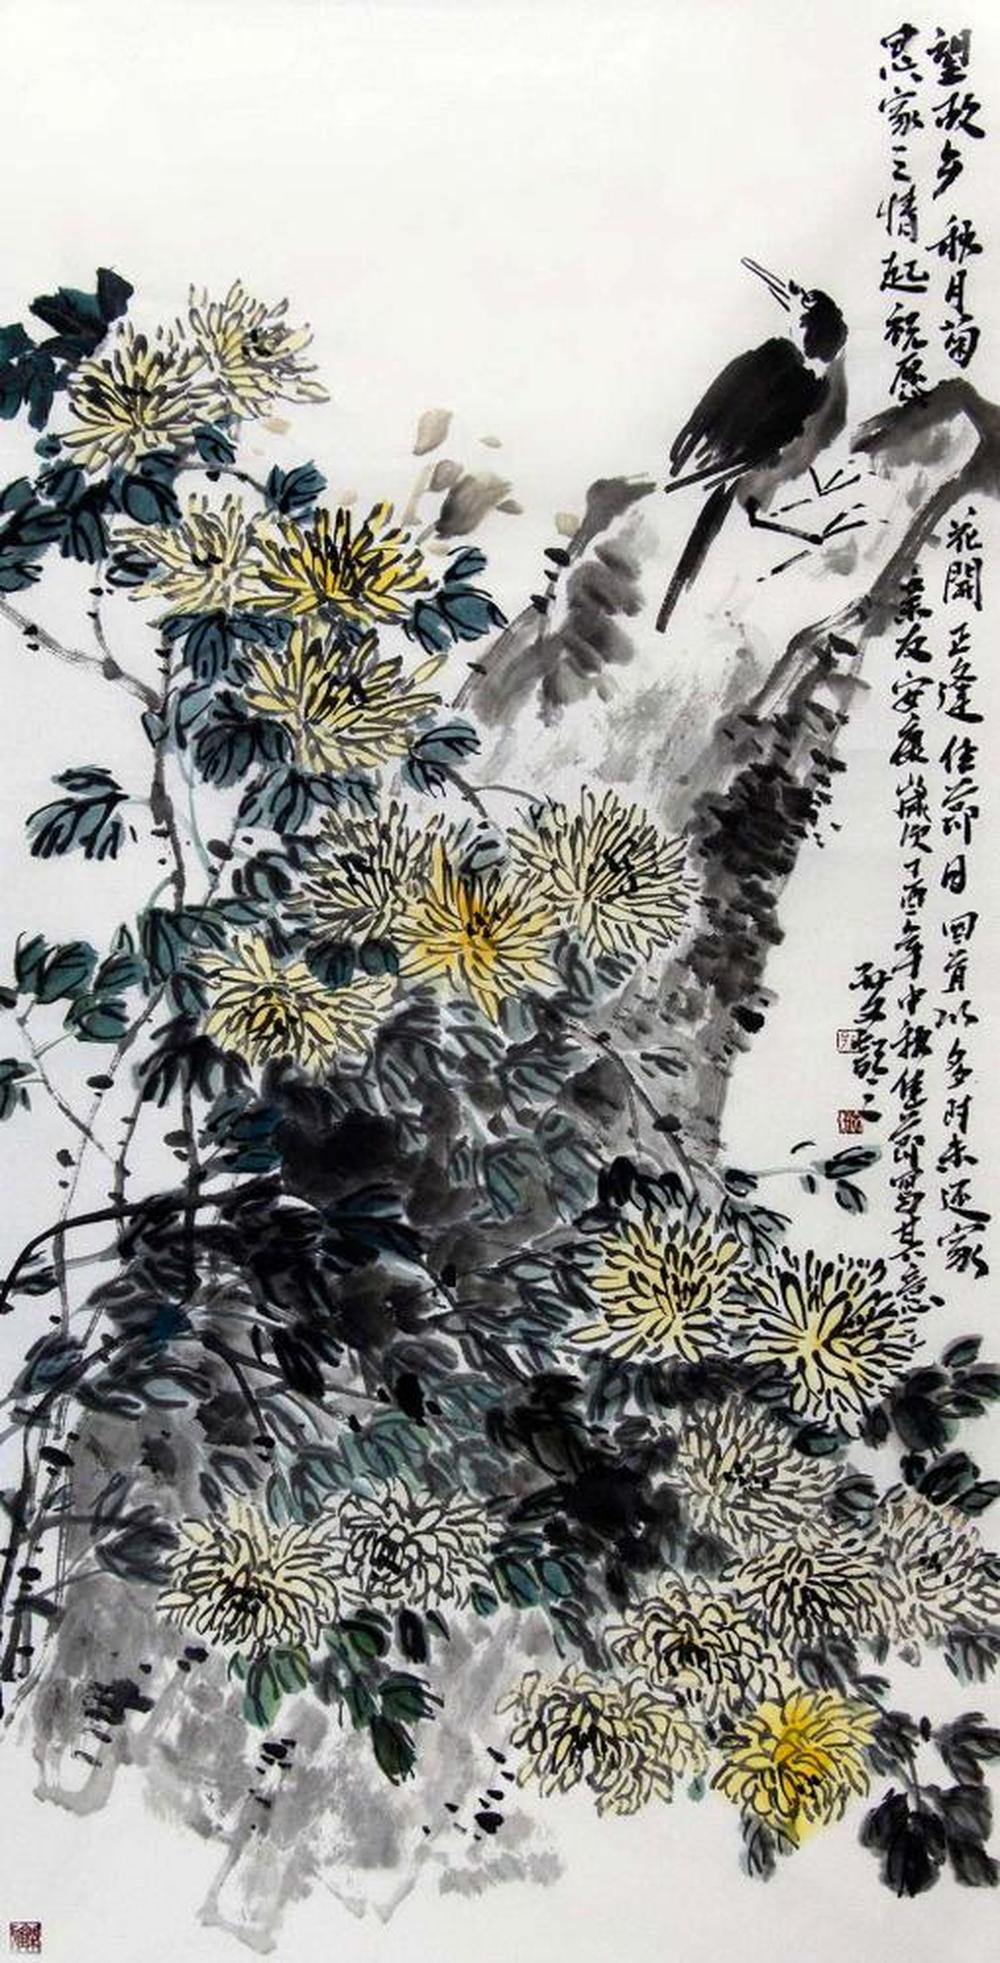 望故乡 秋月菊花開正逢佳節日回首以多时未还家
思家之情起祝愿亲友安康 歲次丁酉年中秋佳節寫其意